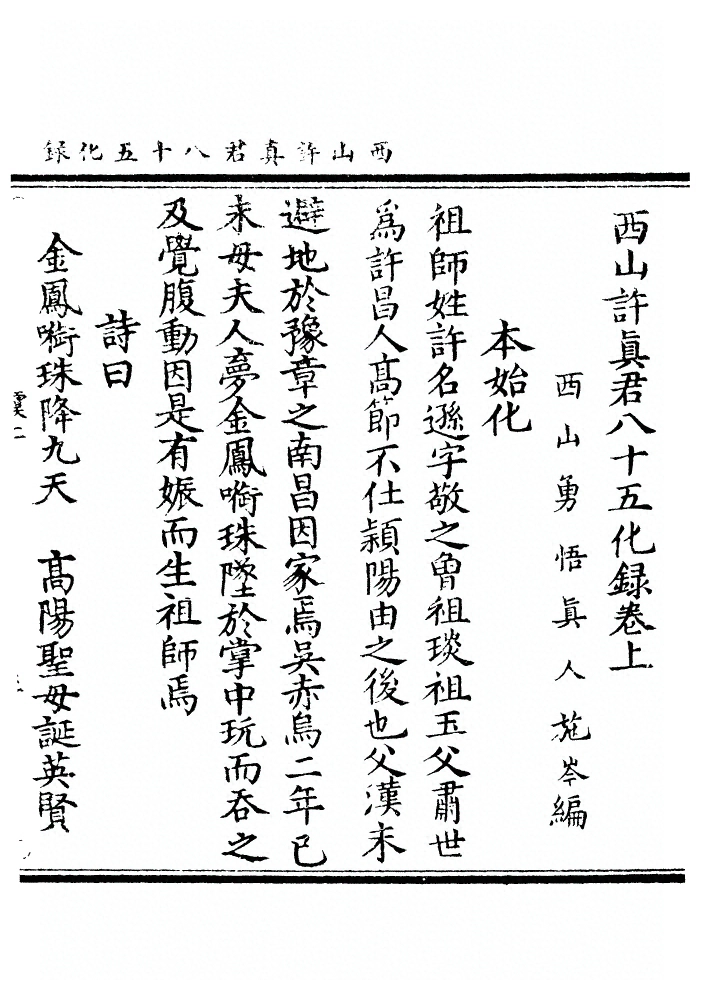 西山許真君八十五化録
西山許眞君八十五化録卷上
西山勇悟眞人施岑編
本始化
祖師姓許名遜字敬之曾祖琰祖玉父肅世
爲許昌人高節不仕潁陽由之後也父漢末
避地於豫章之南昌因家焉吳赤烏二年己
未母夫人夢金鳳啣珠墜於掌中玩而吞之
及覺腹動因是有娠而生祖師焉
詩曰
金鳳啣珠降九天　高陽聖母誕英賢